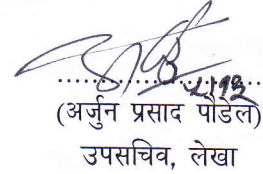 (अर्जुन प्रसाद पौडेल)
उपसचिव, लेखा